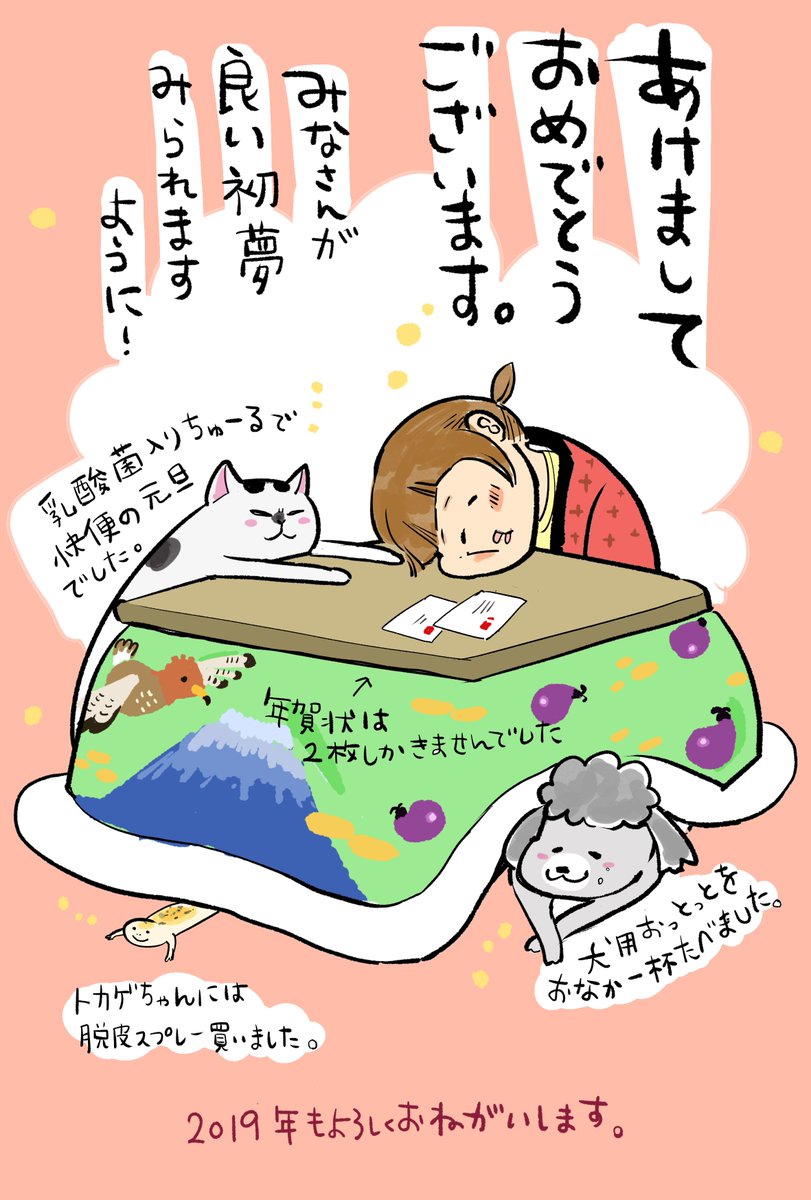 あけまして
おめでとう
ございます。
みなさんが
良い初夢
みられます
ように!
乳酸菌入りちゅーるで
快便の元旦
でした。
年賀状は
2枚しかきませんでした
犬用おっとっとを
おなか一杯たべました。
トカゲちゃんには
脱皮スプレー買いました。
2019年もよろしくおねがいします。